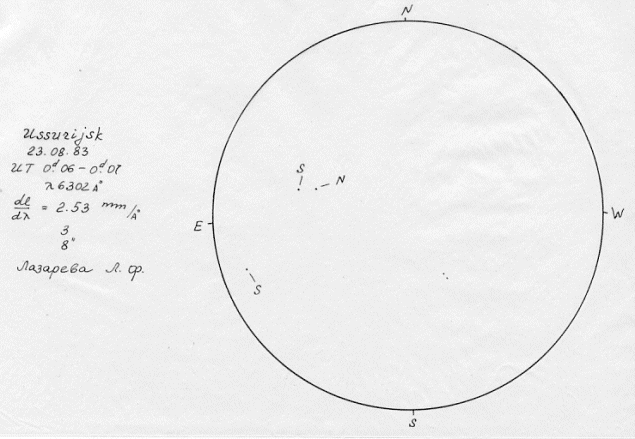 Ussurijsk
23.08.83
UT 0ᵈ.06 – 0ᵈ.07
λ 6302 Aº
dl/dλ = 2.53 mm/Aº
3
8"
Лазарева Л. Ф.
N
S
N
E
W
S
S